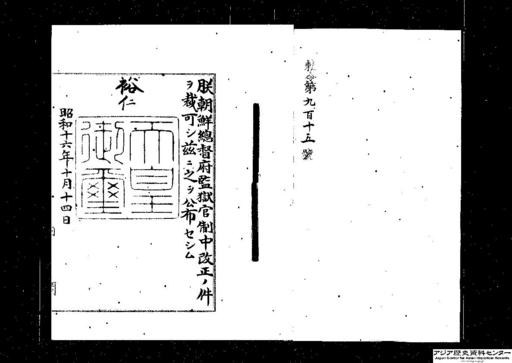 勅令第九百十五號
朕朝鮮總督府監獄官制中改正ノ件
ヲ裁可シ茲ニ之ヲ公布セシム
裕仁
天皇御璽
昭和十六年十月十四日
アジア歴史資料センター
Japan Center for Asian Historical Records